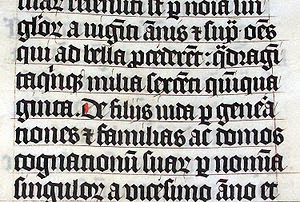 suar recensiti st p noīa sin
gl'or a vigīti ānis & sup' oēs
qui ad bella pcederēt: q̈dragī
ta q̄nq; milia sexcēti quinqua
ginta. De filijs iuda p genera
tiones & familias ac domos
cognationū suar p nomīa
singulor a vicesimo āno et